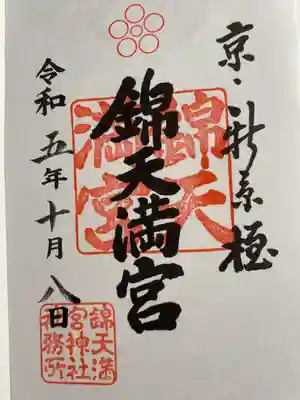 京・新京極
錦天満宮
錦天
満宮
令和五年十月八日
錦天満
宮神社
務所